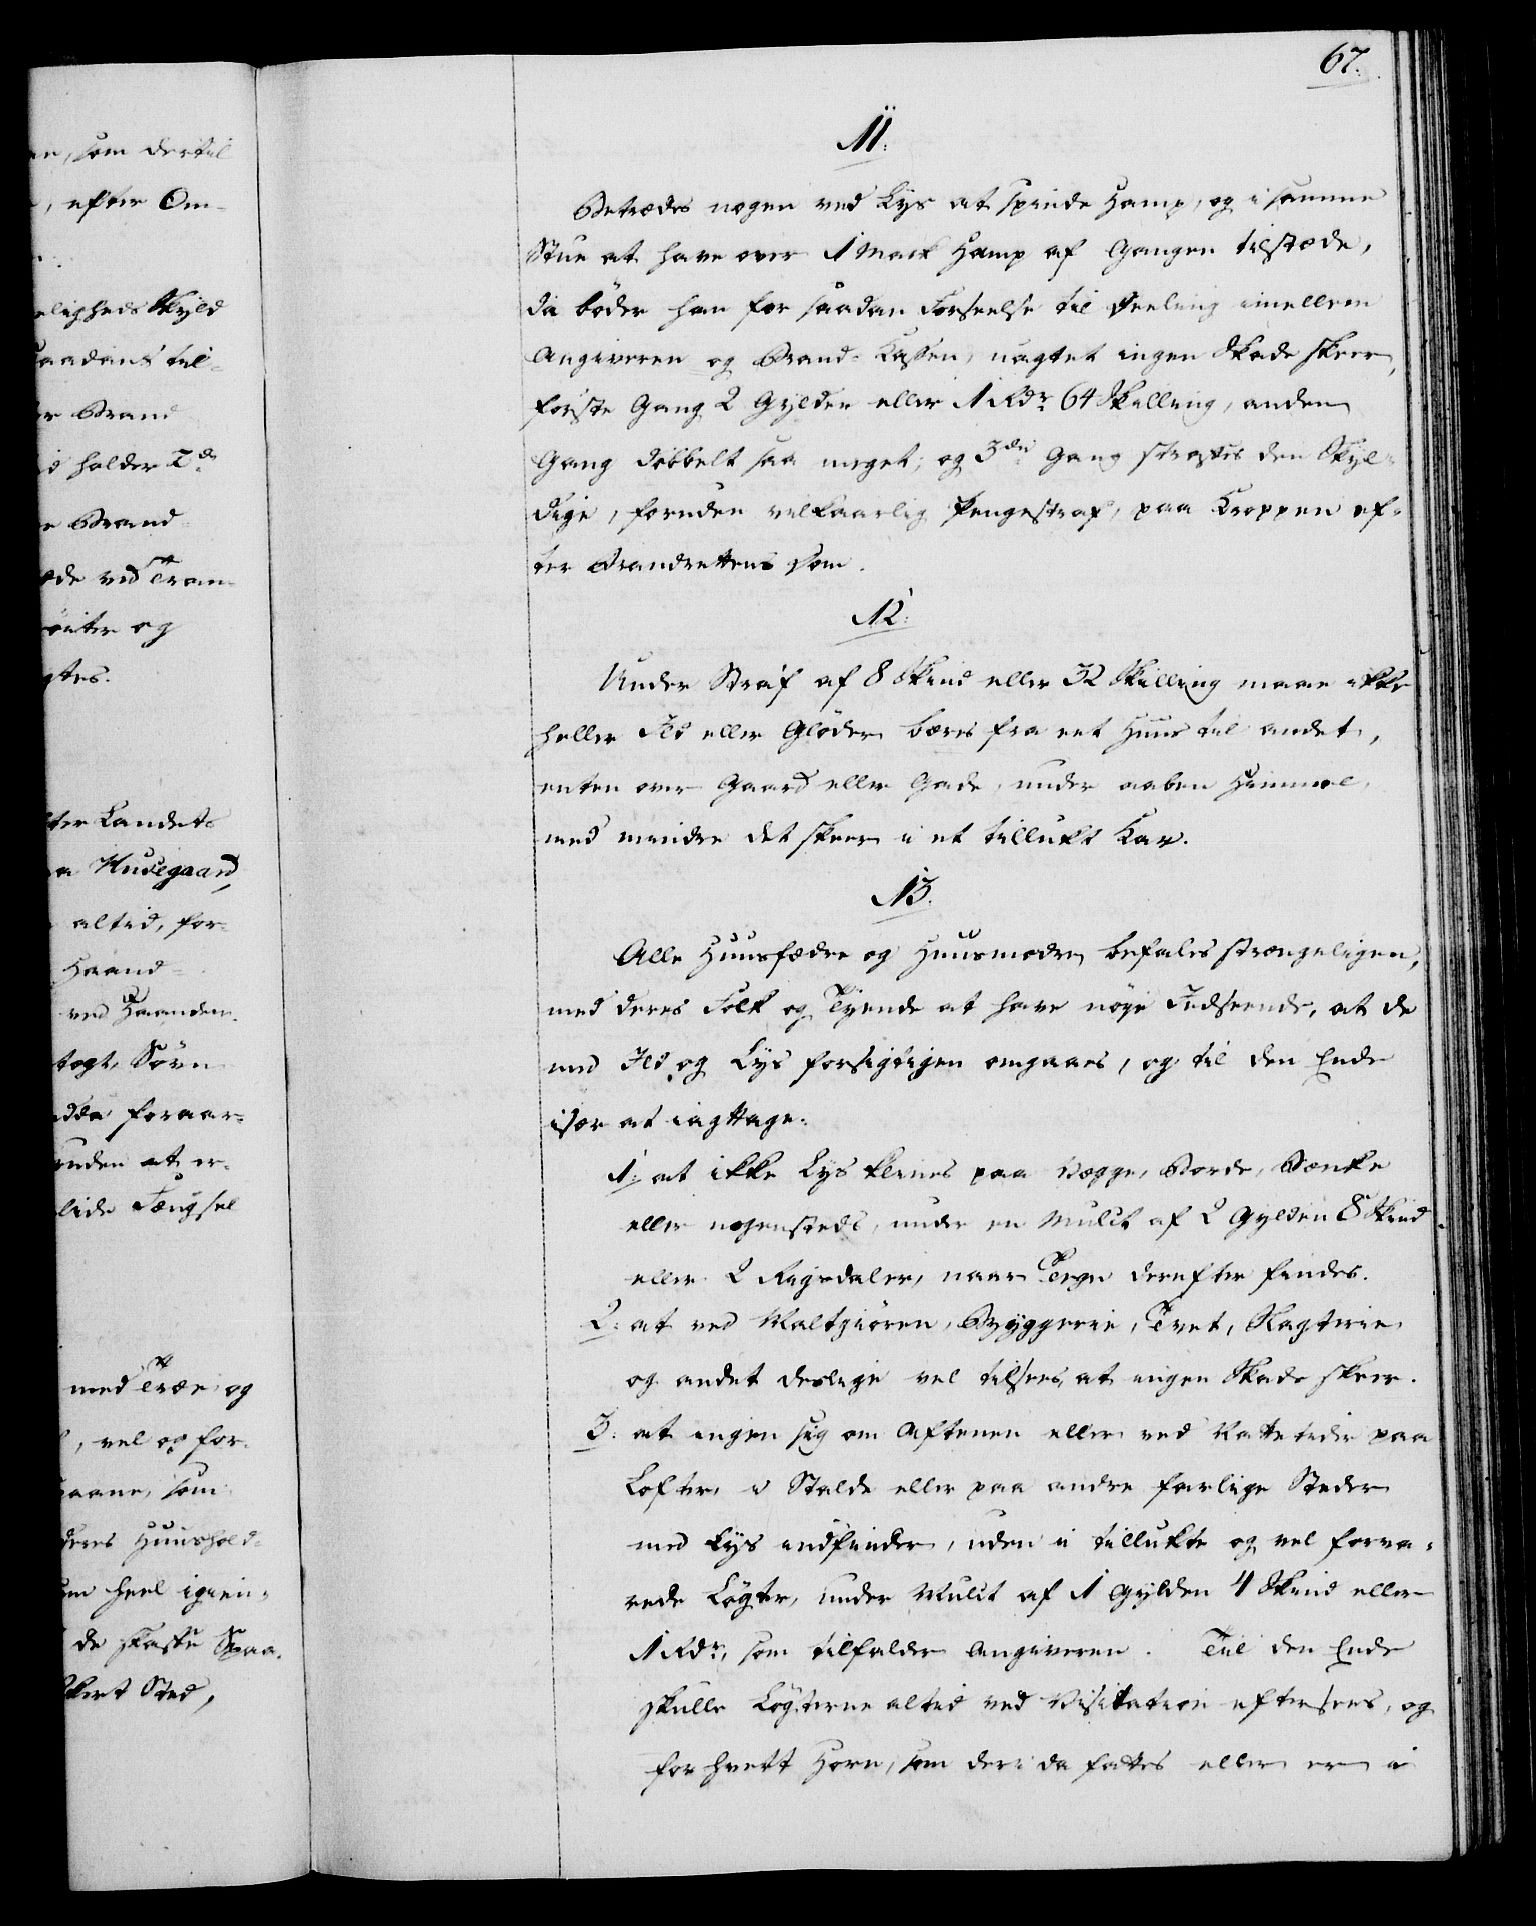 67.
11.
Betrædes nogen ved Lys at spinde Hamp, og i samme
Stue at have over 1 Mark Hamp af Gangen tilstæde,
da böder han for saadan Forseelse til Deeling imellem
Angiveren og Brand-Cassen, uagtet ingen Skade skeer,
förste Gang 2 Gylden eller 1 Rdr 64 Skilling, anden
Gang döbbelt saa meget; og 3die Gang straffes den Skyl-
dige, foruden vilkaarlig Pengestraf, paa Kroppen ef-
ter Brandrettens Dom.
12.
Under Straf af 8 Skind eller 32 Skilling maae ikke
heller Ild eller Glöder bæres fra eet Huus til andet,
enten over Gaard eller Gade, under aaben Himmel,
med mindre det skeer i et tillukt Kar.
13.
Alle Huusfædre og Huusmodre befales strængeligen,
med deres Folk og Tyende at have nöye Indseende, at de
med Ild og Lys forsigtigen omgaaes, og til den Ende
især at iagttage.
1. at ikke Lys klines paa Vægge, Borde, Bænke
eller nogensteds, under en Mulct af 2 Gylden 8 Skind
eller 2 Rigsdaler, naar Tegn derefter findes.
2. at ved Maltgiören, Byggerie, Tvet, Slagterie
og andet deslige vel tilsees, at ingen Skade skeer.
3. at ingen sig om Aftenen eller ved Nattetider paa
Lofter, i Stalde eller paa andre farlige Steder
med Lys indfinder, uden i tillukte og vel forva-
rede Løgter, under Mulct af 1 Gylden 4 Skind eller
1 Rdr, som tilfalder Angiveren. Til den Ende
skulle Løgterne altid ved Visitation eftersees, og
for hvert Horn, som deri da fattes eller er i
som dertil
, efter Om-
eligheds Skyld
saadant til-
er Brand
holder 2de
Brand-
ved Tran-
og
ter Landets
Hudegaard,
altid, for-
Haand-
ved Haanden.
togt, Sörn
foraar-
at er-
Fængsel
med Træe og
, vel og for-
som
deres Huushold-
heel igien-
de skaffe Spaa-
Sted,